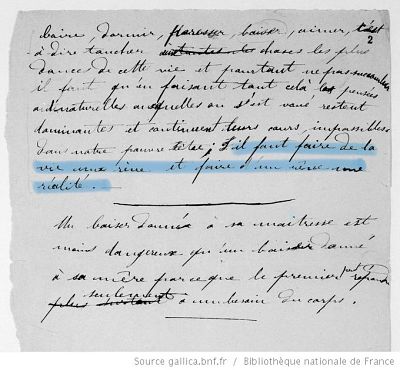 boire, dormir, paresser, baiser, aimer, c'est
2
à dire toucher aux choses les plus
douces de cette vie et pourtant ne pas succomber
il faut qu'en faisant tout cela les pensées
on s'est voué restent
dominantes et continuent leurs cours, impassibles
dans notre pauvre tête; il faut faire de la
vie un rêve et faire d'un rêve une
réalité.
Un baiser donné à sa maitresse est
moins dangereux qu'un baiser donné
à sa mère parceque le premier peut répondre
plus seulement
à un besoin du corps.
Source gallica.bnf.fr / Bibliothèque nationale de France